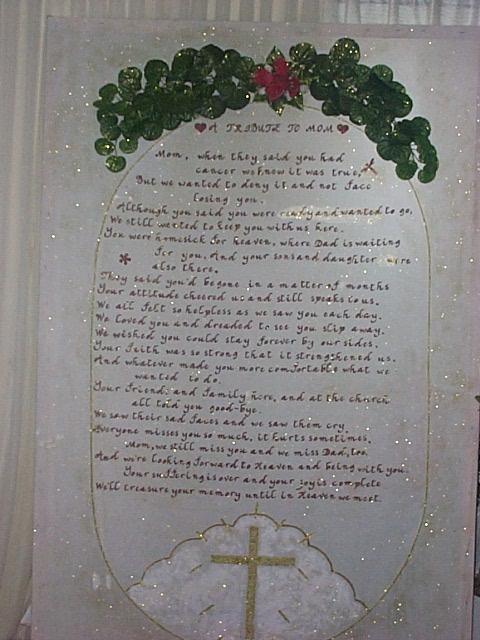 A TRIBUTE TO MOM
Mom, when they said you had
cancer we knew it was true,
But we wanted to deny it and not face
losing you.
Although you said you were ready and wanted to go,
We still wanted to keep you with us here.
You were homesick for heaven, where Dad is waiting
for you. And your sons and daughter were
also there.
They said you'd be gone in a matter of months
Your attitude cheered us and still speaks to us.
We all felt so helpless as we saw you each day.
We loved you and dreaded to see you slip away.
We wished you could stay forever by our sides.
Your faith was so strong that it strengthened us.
And whatever made you more comfortable what we
wanted to do.
Your friends and family here, and at the church
all told you good-bye.
We saw their sad faces and we saw them cry.
Everyone misses you so much, it hurts sometimes.
Mom, we still miss you and we miss Dad, too.
And we're looking forward to Heaven and being with you.
Your suffering is over and your joy is complete
We'll treasure your memory until in Heaven we meet.